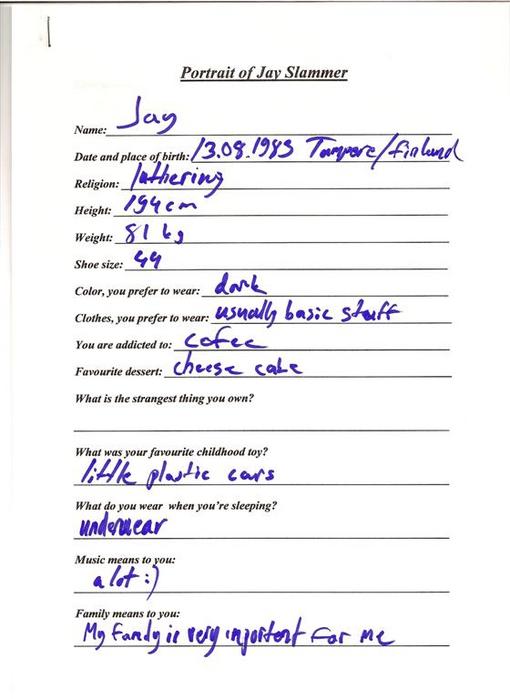 Portrait of Jay Slammer
Name: Jay
Date and place of birth: 13.08.1983 Tampere/finland
Religion: luthering
Height: 194 cm
Weight: 81 kg
Shoe size: 44
Color, you prefer to wear: dark
Clothes, you prefer to wear: usually basic stuff
You are addicted to: cofee
Favourite dessert: cheese cake
What is the strangest thing you own?
What was your favourite childhood toy?
little plastic cars
What do you wear when you're sleeping?
underwear
Music means to you:
a lot :)
Family means to you:
My Family is very inportent for me